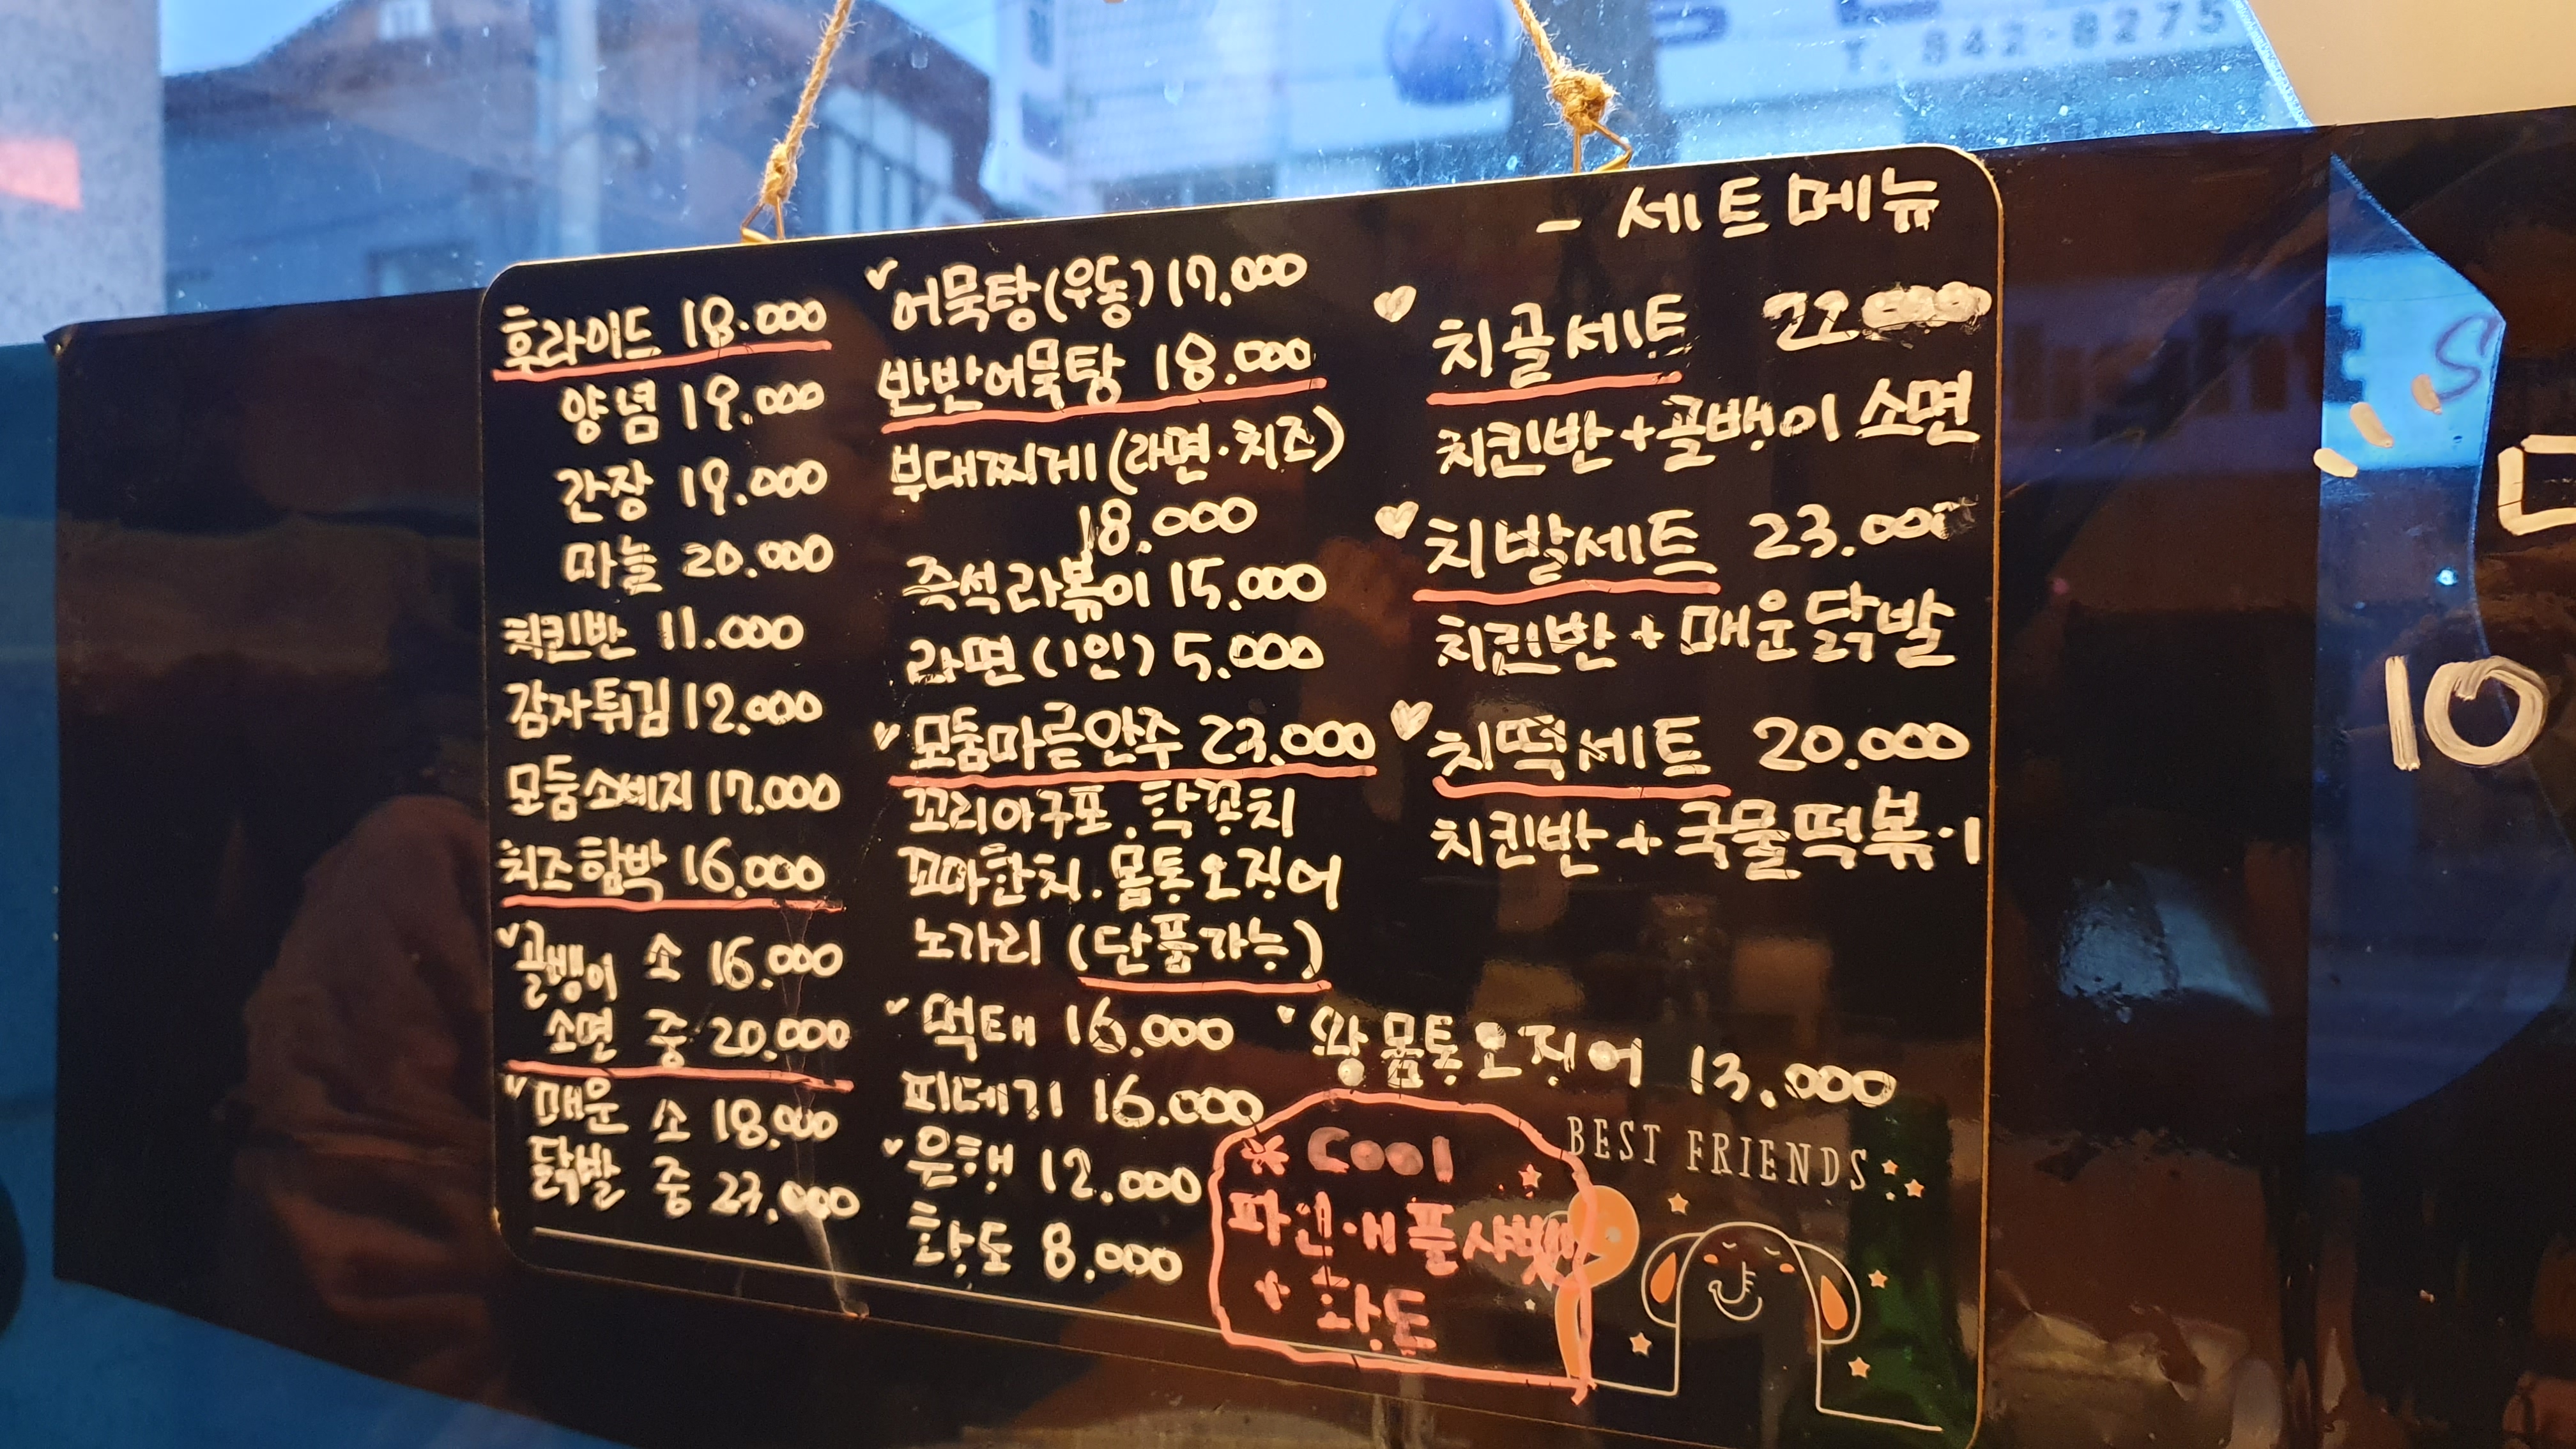 T. 842-8275
- 세트메뉴
후라이드 18.000
양념 19.000
간장 19.000
마늘 20.000
치킨반 11.000
감자튀김 12.000
모둠소세지 17.000
치즈함박 16.000
골뱅이 소 16.000
소면 중 20.000
매운 소 18.000
닭발 중 23.000
어묵탕(우동) 17.000
반반어묵탕 18.000
부대찌게(라면·치즈)
18.000
즉석라볶이 15.000
라면(1인) 5.000
모둠마른안주 23.000
꼬리아구포. 학꽁치
꼬마한치. 몸통오징어
노가리 (단품가능)
먹태 16.000
피데기 16.000
은행 12.000
황도 8.000
치골세트 22.000
치킨반+골뱅이 소면
치발세트 23.000
치킨반+매운닭발
치떡세트 20.000
치킨반+국물떡볶이
왕몸통오징어 13.000
* Cool
파인애플샤벳
+ 황도
BEST FRIENDS
10